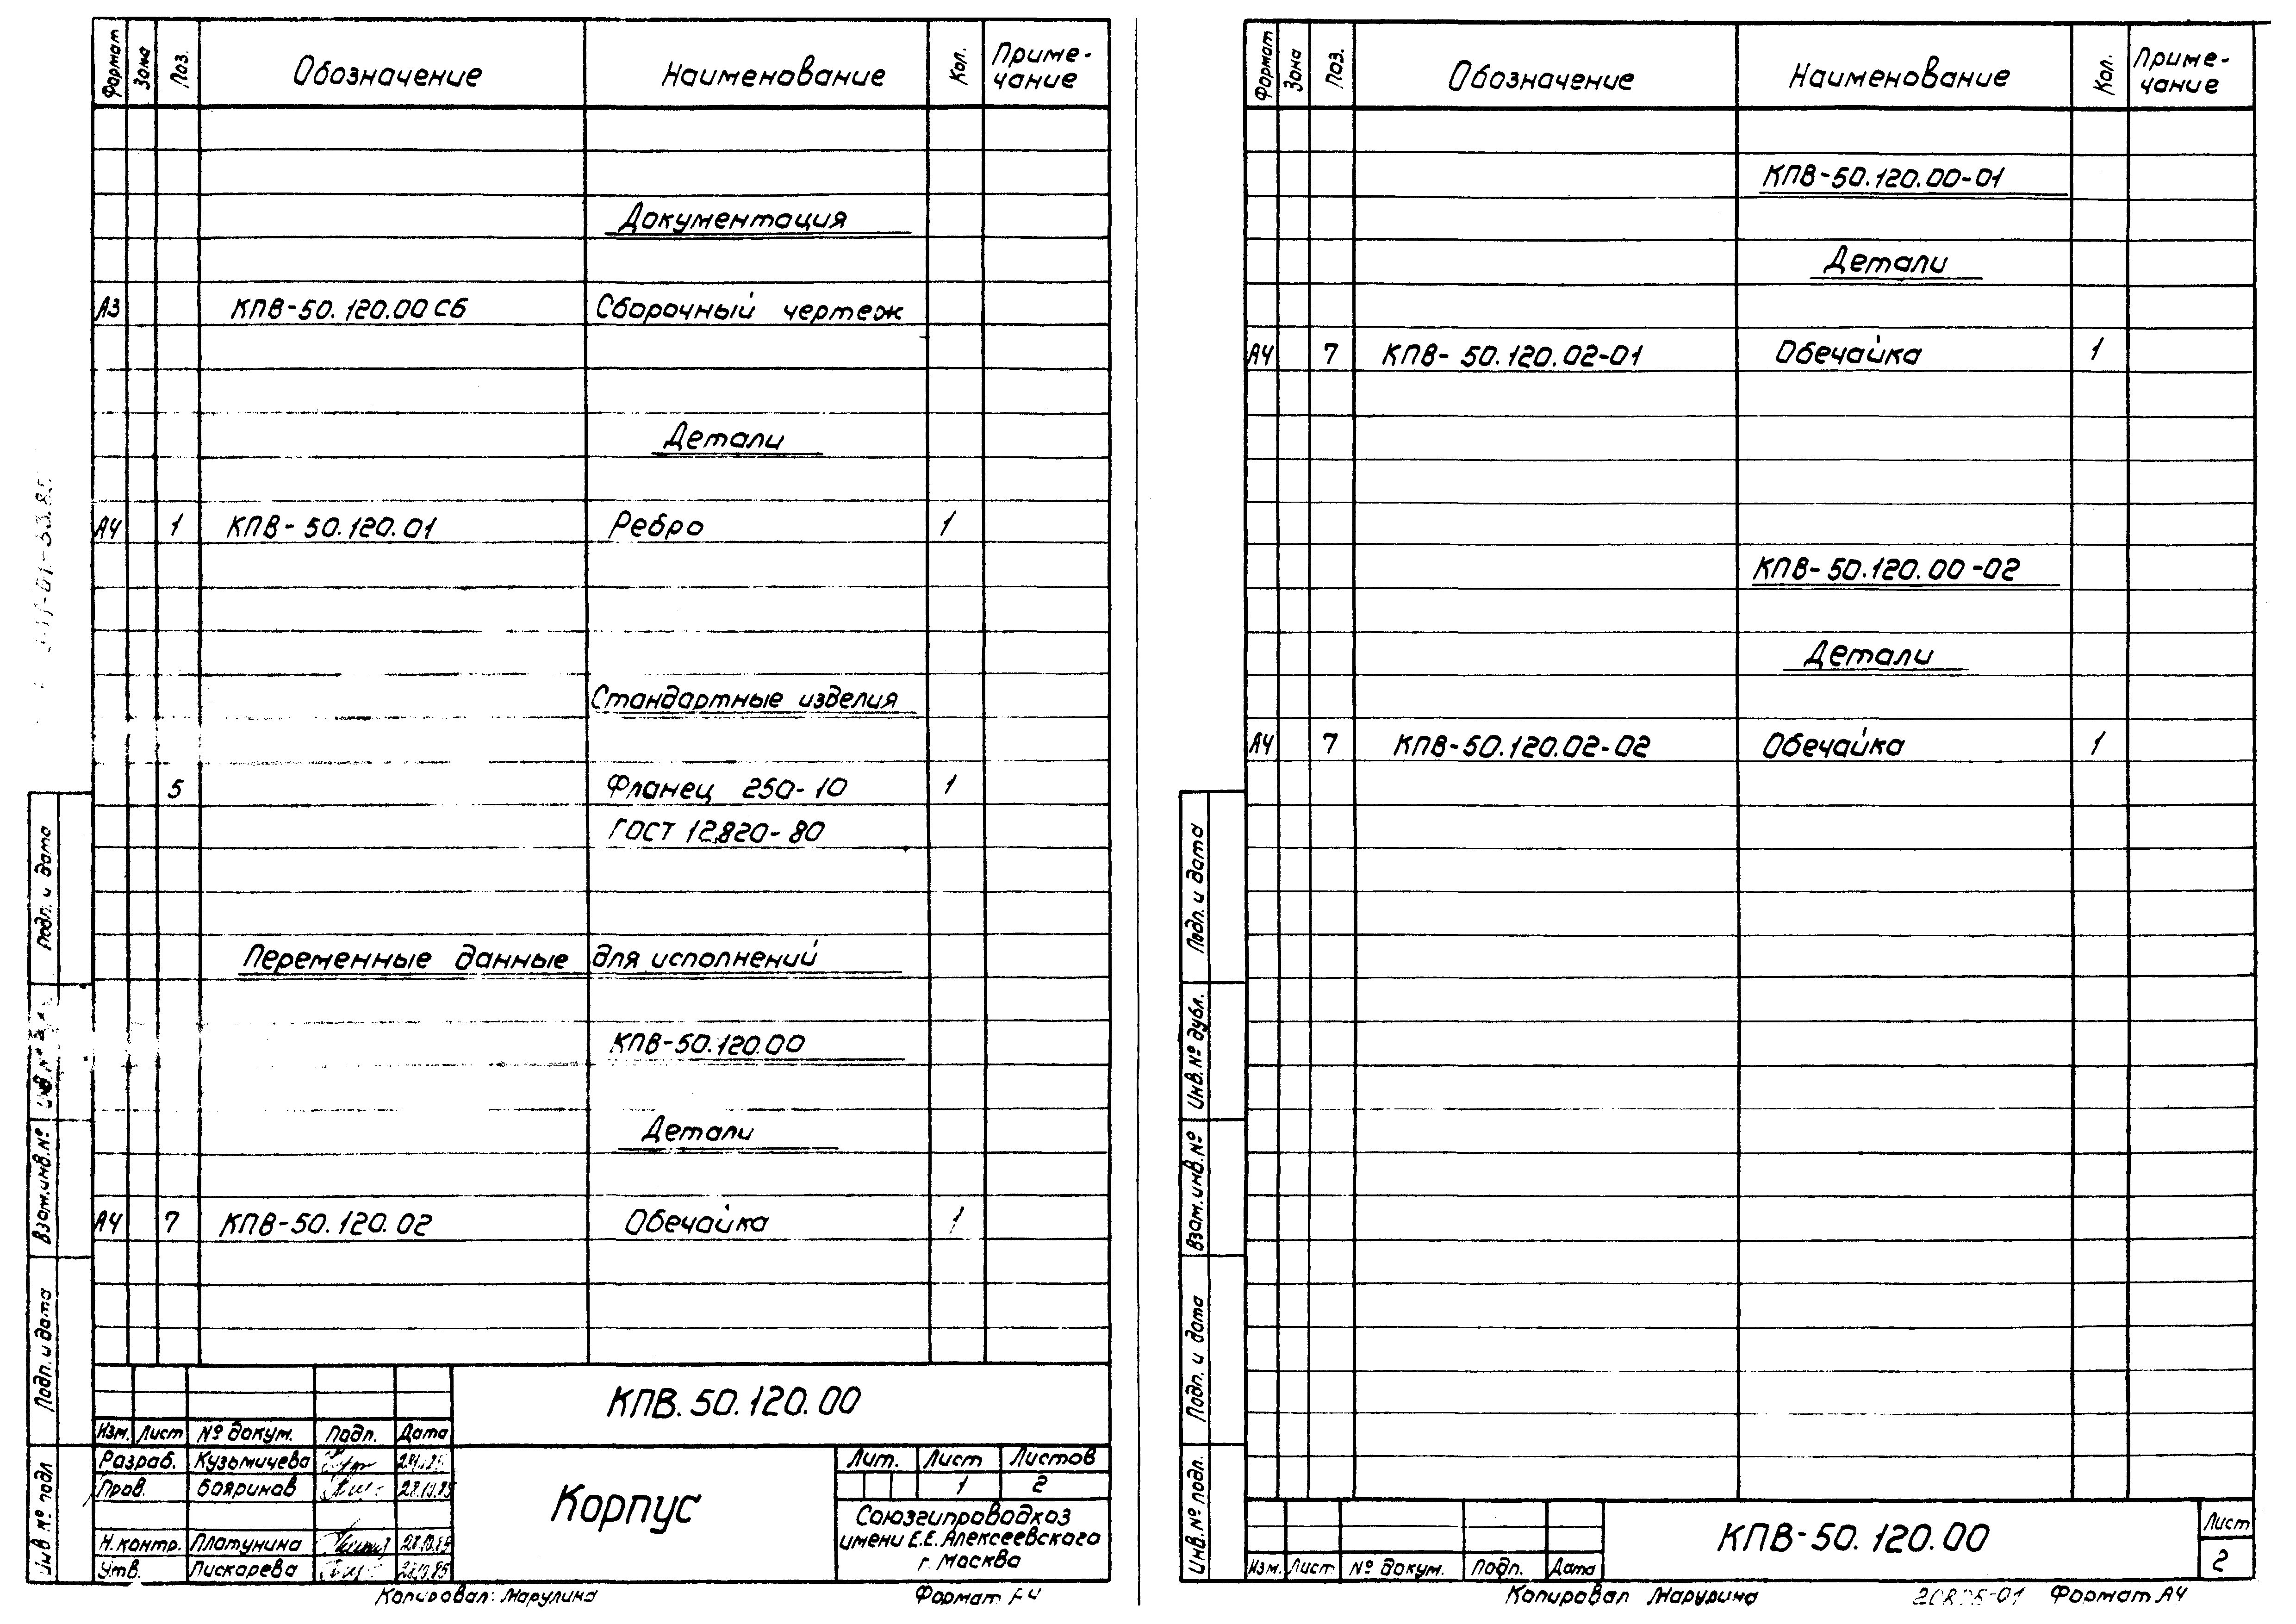 Формат Зона Поз. Обозначение Наименование Кол. Приме-
чание
Документация
А3 КПВ-50.120.00 СБ Сборочный чертеж
Детали
А4 1 КПВ-50.120.01 Ребро 1
Стандартные изделия
5 Фланец 250-10 1
ГОСТ 12820-80
Переменные данные для исполнений
КПВ-50.120.00
Детали
А4 7 КПВ-50.120.02 Обечайка 1
КПВ.50.120.00
Изм. Лист № докум. Подп. Дата
Разраб. Кузьмичева
Пров. Бояринов 28.10.85
Н.контр. Платунина 28.10.85
Утв. Пискарева 28.10.85
Корпус
Лит. Лист Листов
1 2
Союзгипроводхоз
имени Е.Е. Алексеевского
г. Москва
Копировал: Марулина Формат А4
Подп. и дата
Инв. №
Взам.инв.№
Подп. и дата
Инв № подл
Формат Зона Поз. Обозначение Наименование Кол. Приме-
чание
КПВ-50.120.00-01
Детали
А4 7 КПВ-50.120.02-01 Обечайка 1
КПВ-50.120.00-02
Детали
А4 7 КПВ-50.120.02-02 Обечайка 1
Подп. и дата
Инв.№ дубл.
Взам.инв.№
Подп. и дата
Инв.№ подл.
Изм. Лист № докум. Подп. Дата
КПВ-50.120.00
Лист
2
Копировал Марулина Формат А4